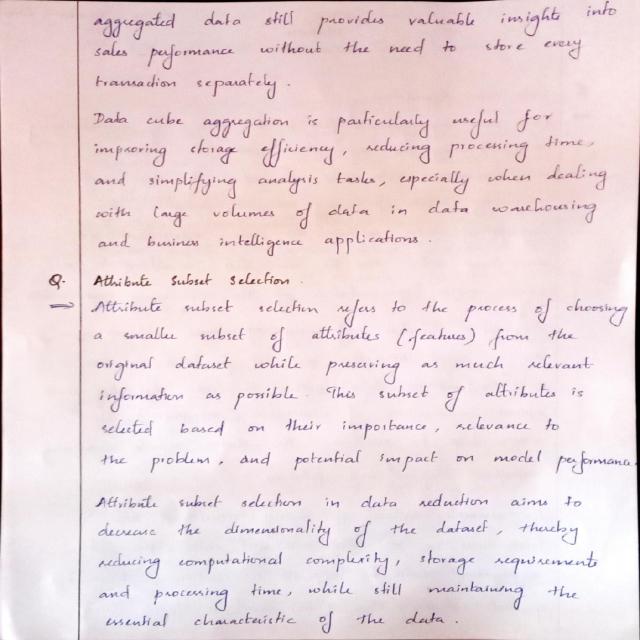 aggregated data still provides valuable insights into
sales performance without the need to store every
transaction separately.
Data cube aggregation is particularly useful for
improving storage efficiency, reducing processing time,
and simplifying analysis tasks, especially when dealing
with large volumes of data in data warehousing
and business intelligence applications.
Q. Attribute Subset Selection.
Attribute subset selection refers to the process of choosing
a smaller subset of attributes (features) from the
original dataset while preserving as much relevant
information as possible. This subset of attributes is
selected based on their importance, relevance to
the problem, and potential impact on model performance.
Attribute subset selection in data reduction aims to
decrease the dimensionality of the dataset, thereby
reducing computational complexity, storage requirements
and processing time, while still maintaining the
essential characteristic of the data.